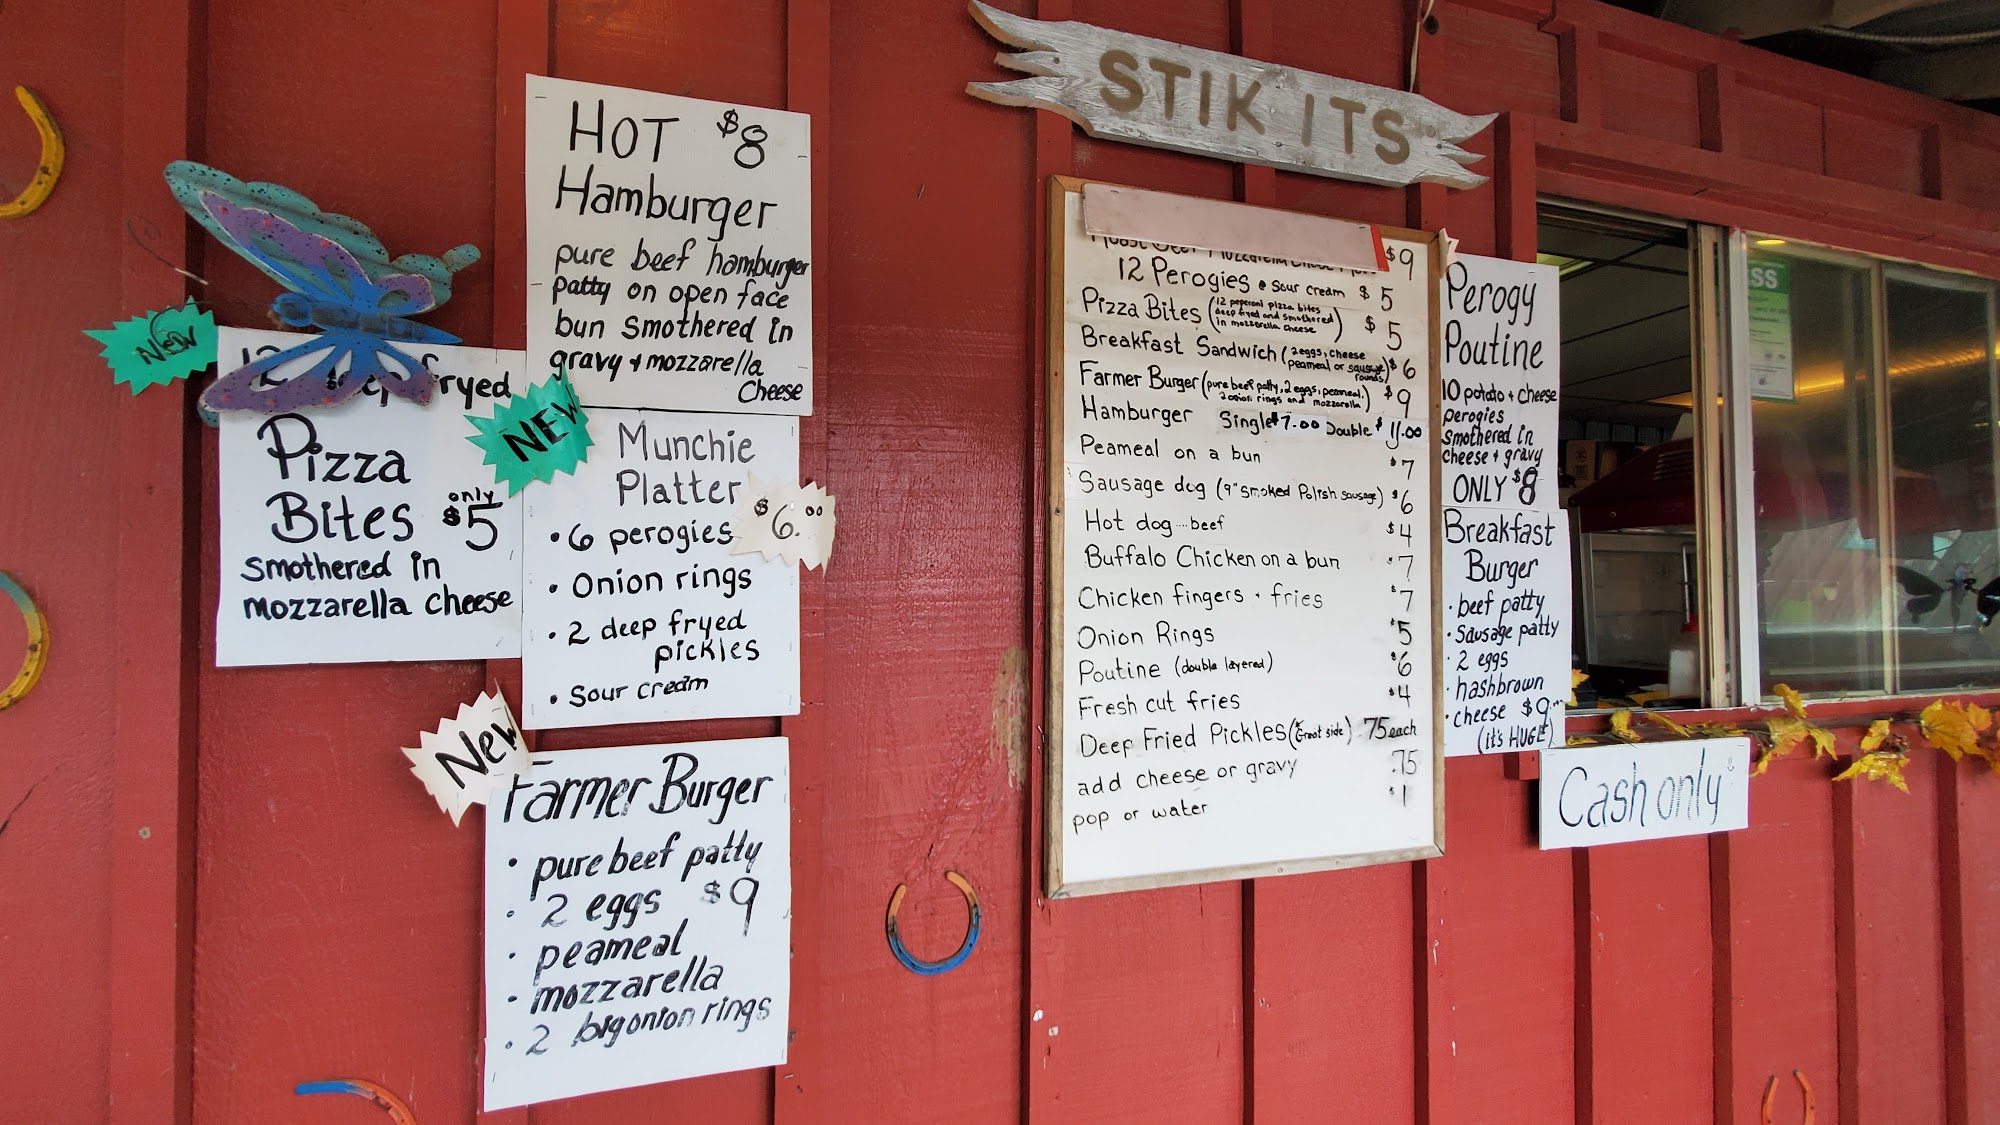 STIK ITS
HOT $8
Hamburger
pure beef hamburger
patty on open face
bun smothered in
gravy + mozzarella
Cheese
NEW
12 fryed
Pizza
Bites only $5
smothered in
mozzarella cheese
NEW
Munchie
Platter
$6.00
• 6 perogies
• Onion rings
• 2 deep fryed
pickles
• Sour cream
New
Farmer Burger
• pure beef patty
• 2 eggs $9
• peameal
• mozzarella
• 2 big onion rings
$9
12 Perogies @ sour cream $5
Pizza Bites (12 peperoni pizza bites
deep fryed and smothered)
in mozzarella cheese $5
Breakfast Sandwich (2 eggs, cheese
peameal or sausage rounds) $6
Farmer Burger (pure beef patty, 2 eggs, peameal,
2 onion rings and mozzarella) $9
Hamburger Single $7.00 Double $11.00
Peameal on a bun $7
Sausage dog (9" smoked Polish sausage) $6
Hot dog....beef $4
Buffalo Chicken on a bun $7
Chicken fingers + fries $7
Onion Rings $5
Poutine (double layered) $6
Fresh cut fries $4
Deep Fried Pickles (Great side) 75 each
add cheese or gravy .75
pop or water $1
Perogy
Poutine
10 potato + cheese
perogies
smothered in
cheese + gravy
ONLY $8
Breakfast
Burger
• beef patty
• sausage patty
• 2 eggs
• hashbrown
• cheese $9
(it's HUGE)
Cash only